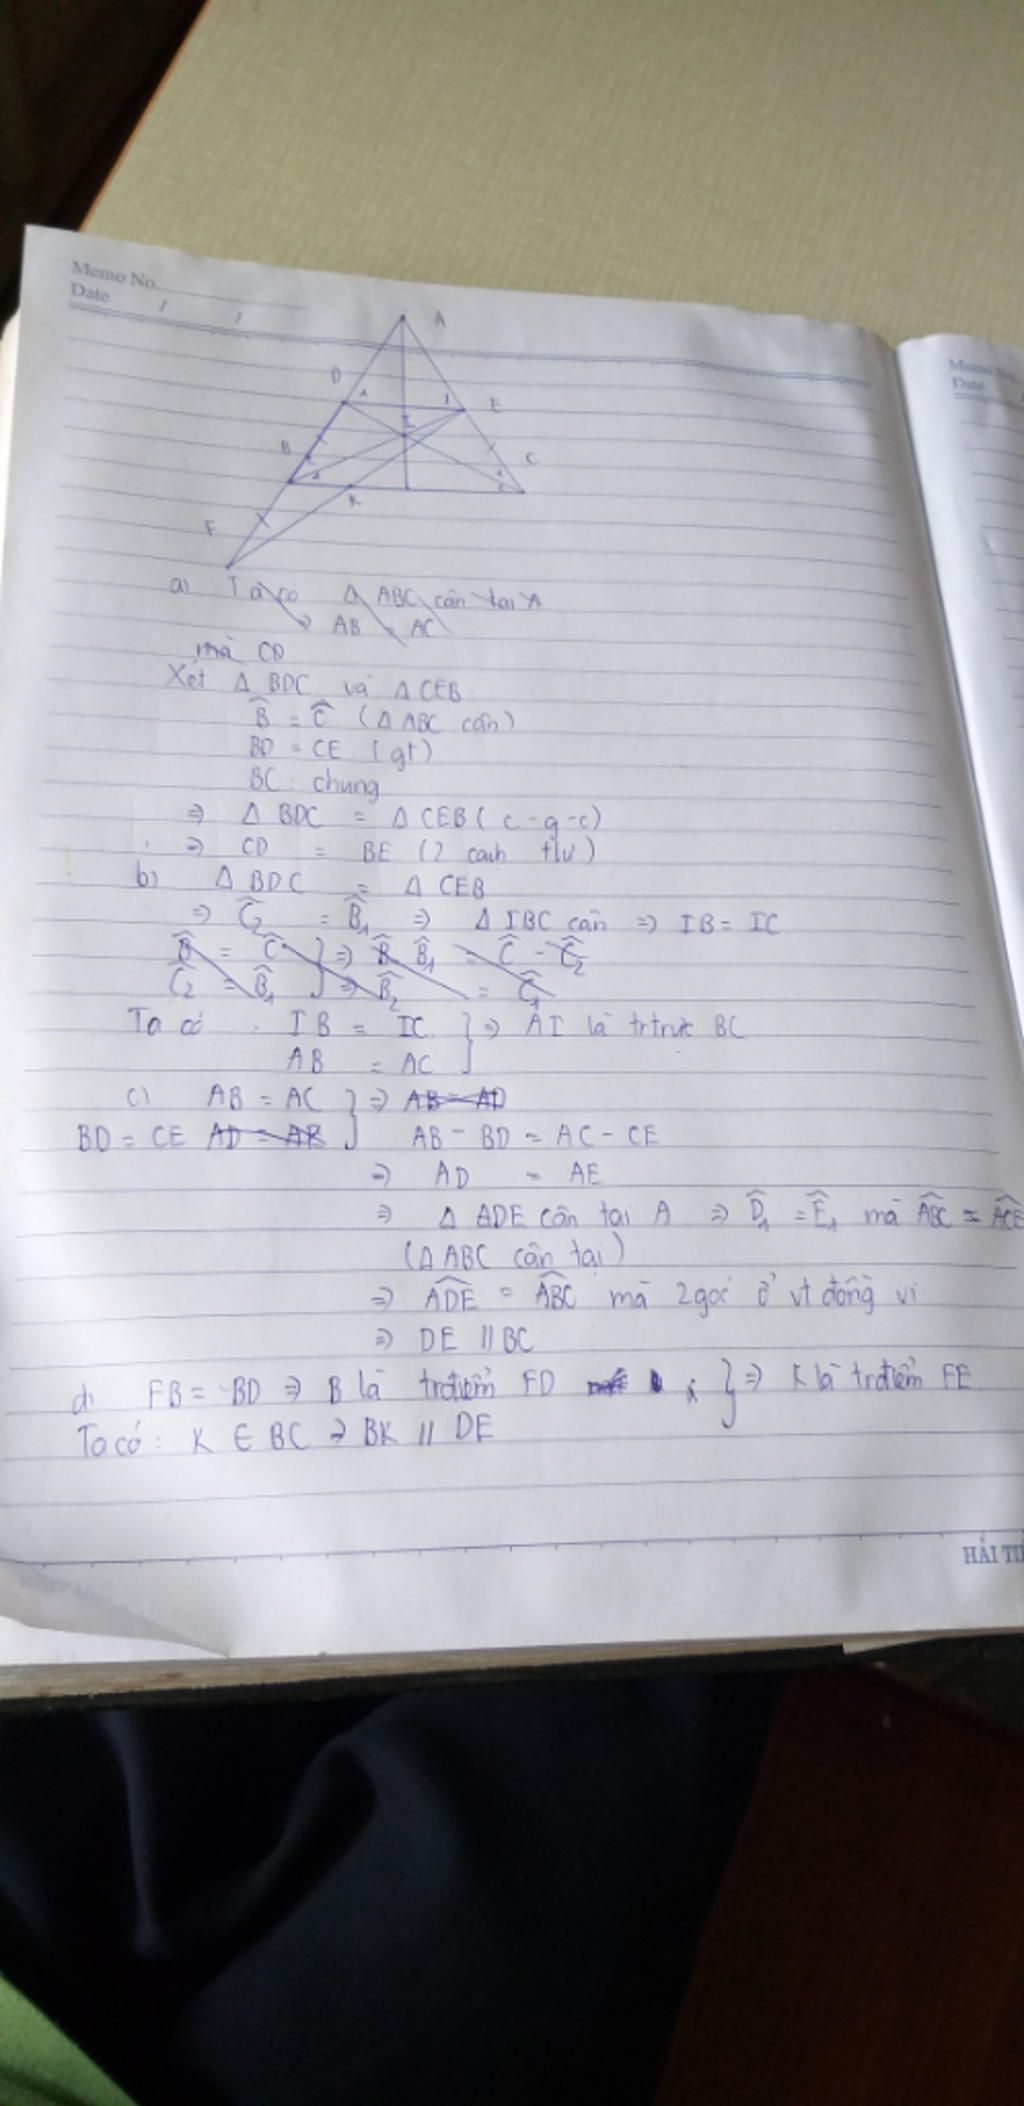 Memo No.
Date / /
Memo No.
Date
A
D
1
1
E
I
B
C
2
K
F
a) Ta có Δ ABC cân tại A
⇒ AB = AC
mà CD
Xét Δ BDC và Δ CEB
B̂ = Ĉ (Δ ABC cân)
BD = CE (gt)
BC : chung
⇒ Δ BDC = Δ CEB (c-g-c)
⇒ CD = BE (2 cạnh t/ư)
b) Δ BDC = Δ CEB
⇒ Ĉ₂ = B̂₁ ⇒ Δ IBC cân ⇒ IB = IC
B̂ = Ĉ } ⇒ B̂ - B̂₁ = Ĉ - Ĉ₂
Ĉ₂ = B̂₁ ⇒ B̂₂ = Ĉ₁
Ta có IB = IC } ⇒ AI là trtrực BC
AB = AC
c) AB = AC } ⇒ AB = AD
BD = CE AD = AB AB - BD = AC - CE
⇒ AD = AE
⇒ Δ ADE cân tại A ⇒ D̂₁ = Ê₁ mà ABC = ACE
(Δ ABC cân tại)
⇒ ADE = ABC mà 2 góc ở vt đồng vi
⇒ DE // BC
d) FB = BD ⇒ B là trđiểm FD } ⇒ K là trđiểm FE
Ta có : K ∈ BC ⇒ BK // DE
HẢI TI